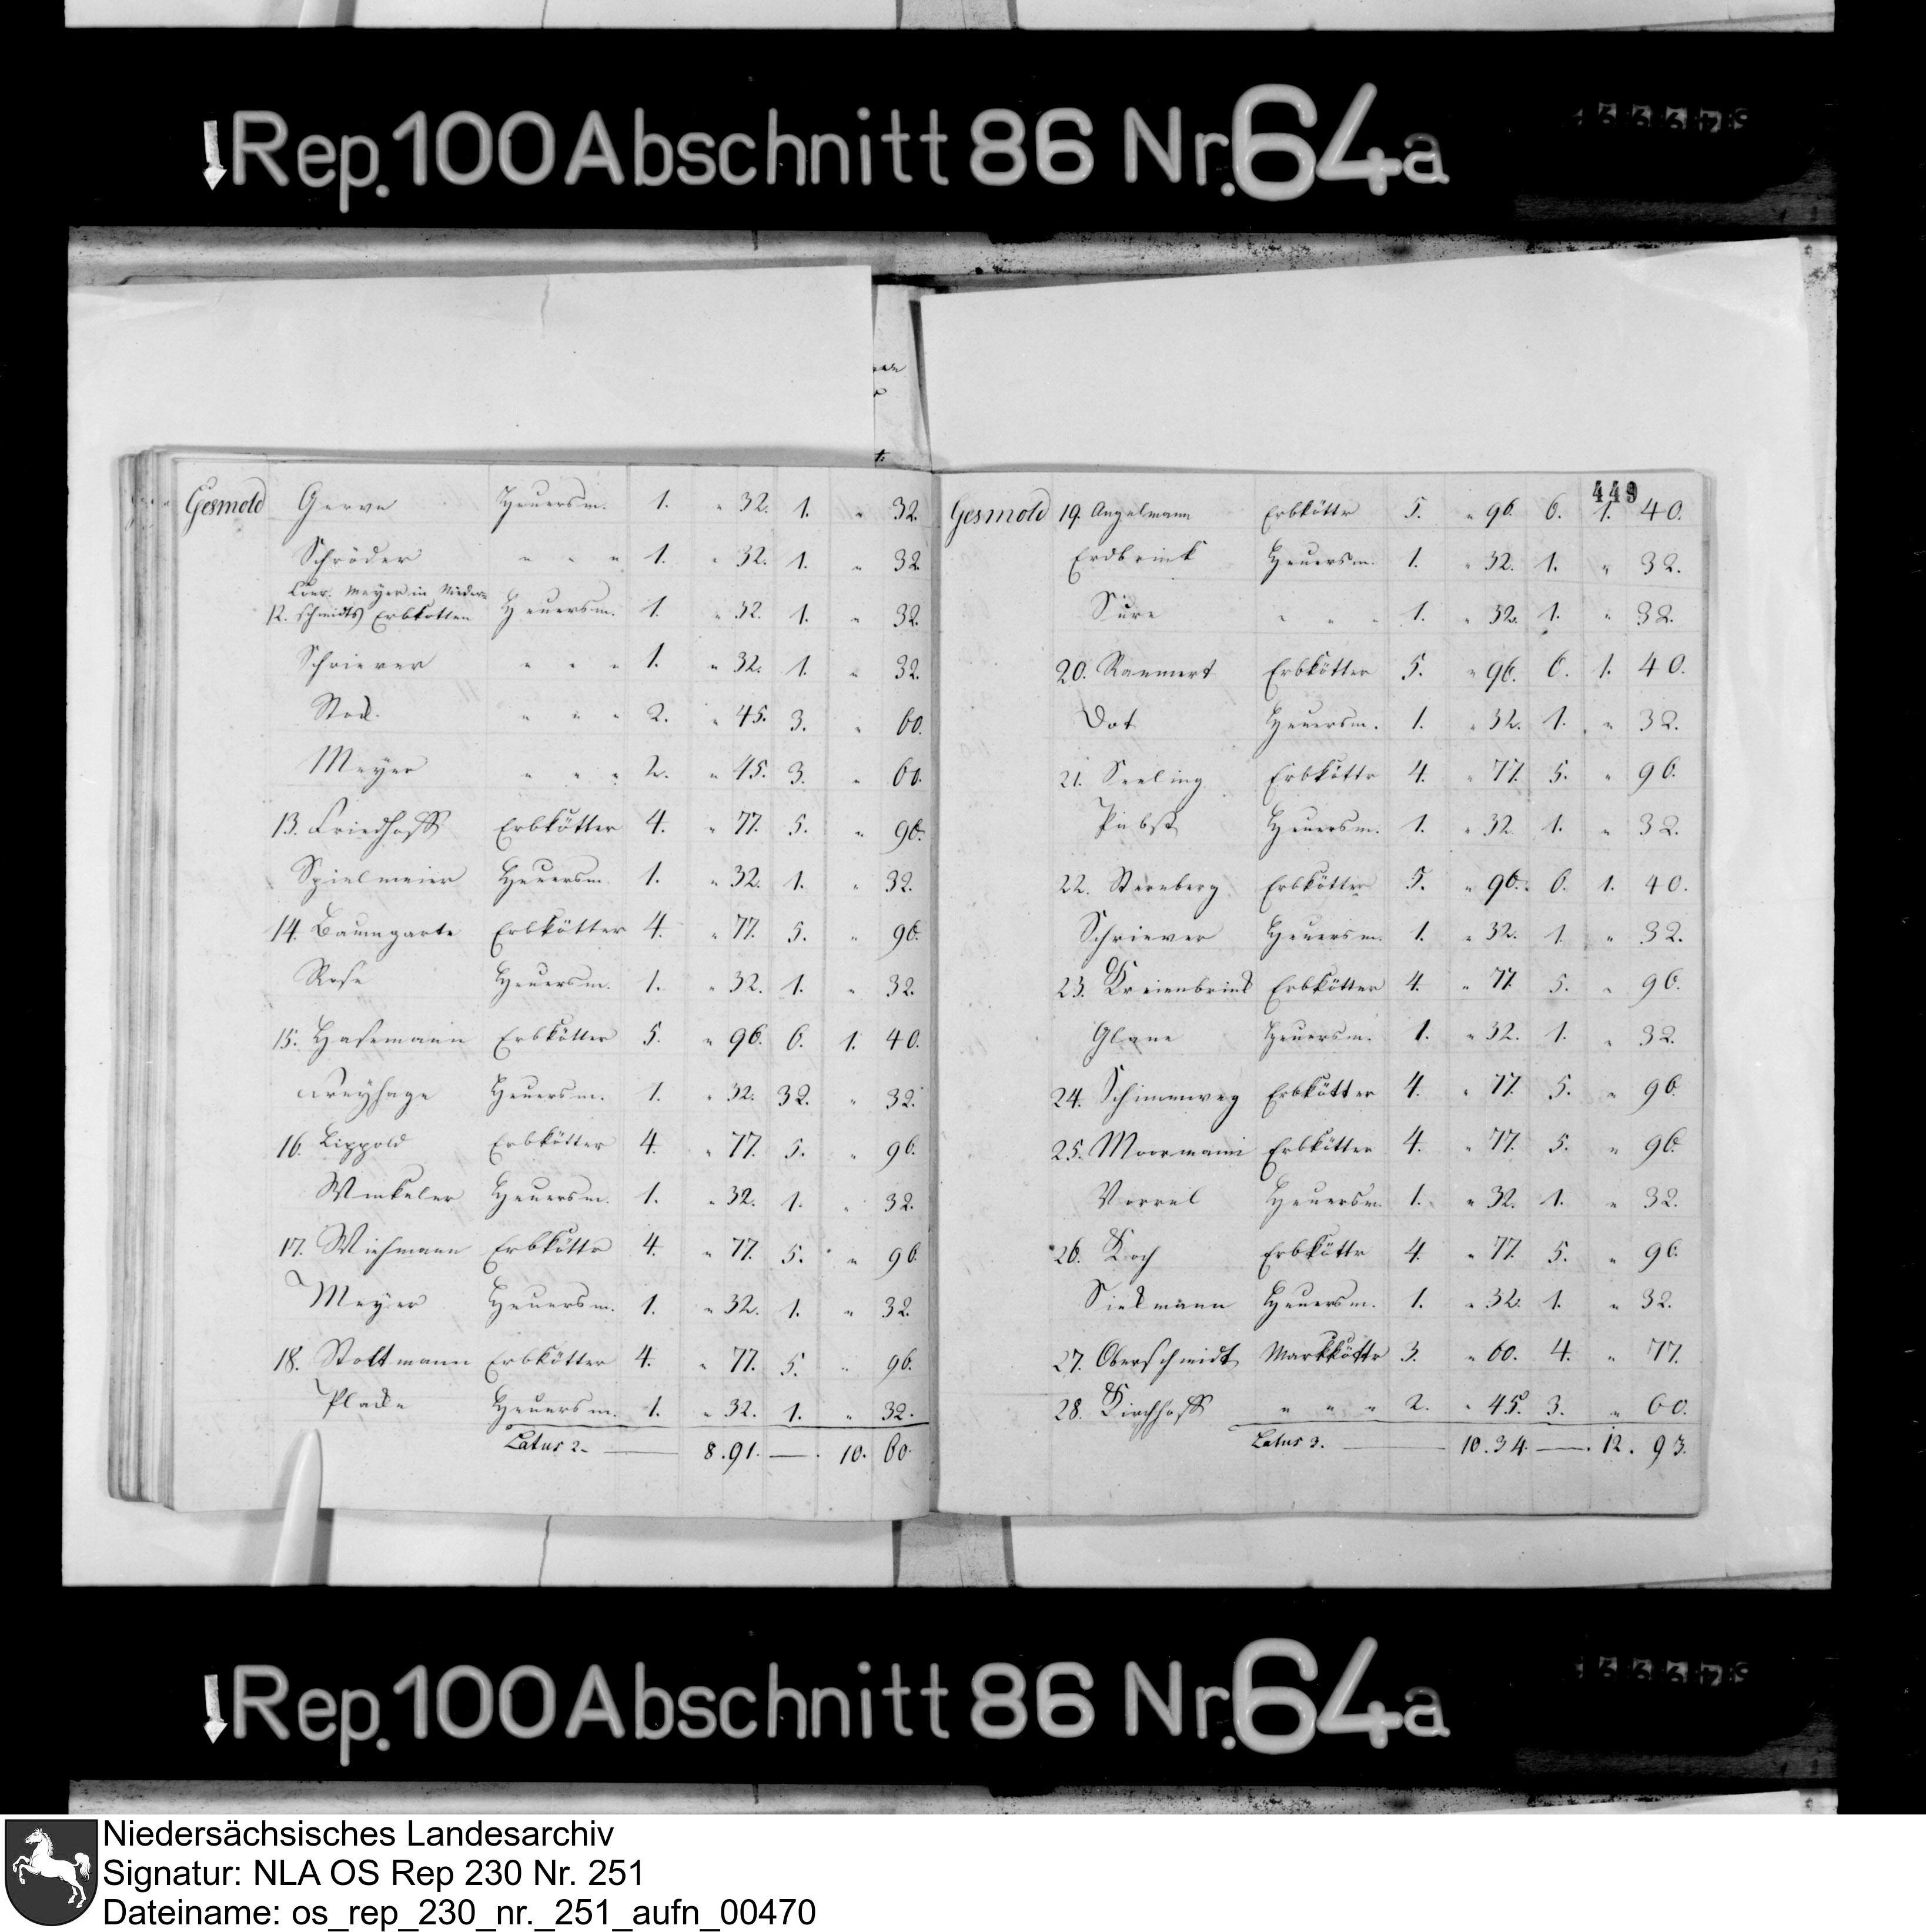 Rep. 100 Abschnitt 86 Nr. 64a
449
Gesmold Gerve Heuersm. 1. " 32. 1. " 32.
Schröder " " " 1. " 32. 1. " 32.
Meyer in Nieder=
12. schmidts Erbkotten Heuersm. 1. " 32. 1. " 32.
Schriever " " " 1. " 32. 1. " 32.
Stock. " " " 2. " 45. 3. " 60.
Meyer " " " 2. " 45. 3. " 60.
13. Friedhoff Erbkötter 4. " 77. 5. " 96.
Spielmeier Heuersm. 1. " 32. 1. " 32.
14. Baumgarte Erbkötter 4. " 77. 5. " 96.
Rose Heuersm. 1. " 32. 1. " 32.
15. Hasemann Erbkötter 5. " 96. 6. 1. 40.
Dreyhage Heuersm. 1. " 32. 32. " 32.
16. Lippold Erbkötter 4. " 77. 5. " 96.
Winkeler Heuersm. 1. " 32. 1. " 32.
17. Wiehmann Erbkötter 4. " 77. 5. " 96.
Meyer Heuersm. 1. " 32. 1. " 32.
18. Stoltmann Erbkötter 4. " 77. 5. " 96.
Placke Heuersm. 1. " 32. 1. " 32.
Latus 2. — 8. 91. — 10. 60.
Gesmold 19. Angelmann Erbkötter 5. " 96. 6. 1. 40.
Erdbrink Heuersm. 1. " 32. 1. " 32.
Süre " " " 1. " 32. 1. " 32.
20. Rammert Erbkötter 5. " 96. 6. 1. 40.
Dot Heuersm. 1. " 32. 1. " 32.
21. Seeling Erbkötter 4. " 77. 5. " 96.
Pabst Heuersm. 1. " 32. 1. " 32.
22. Sternberg Erbkötter 5. " 96. 6. 1. 40.
Schriever Heuersm. 1. " 32. 1. " 32.
23. Kreienbrink Erbkötter 4. " 77. 5. " 96.
Glane Heuersm. 1. " 32. 1. " 32.
24. Schimmweg Erbkötter 4. " 77. 5. " 96.
25. Moormann Erbkötter 4. " 77. 5. " 96.
Heuersm. 1. " 32. 1. " 32.
26. Koch Erbkötter 4. " 77. 5. " 96.
Siekmann Heuersm. 1. " 32. 1. " 32.
27. Oberschmidt Markkötter 3. " 60. 4. " 77.
28. Kirchhoff " " " 2. " 45. 3. " 60.
Latus 3. — 10. 34. — 12. 93.
Rep. 100 Abschnitt 86 Nr. 64a
Niedersächsisches Landesarchiv
Signatur: NLA OS Rep 230 Nr. 251
Dateiname: os_rep_230_nr._251_aufn_00470